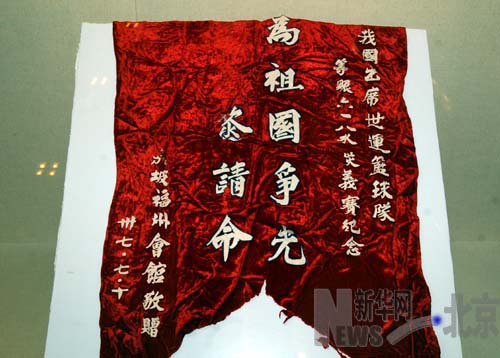 我國出席世運籃球隊
籌賑六一八水災義賽紀念
為祖國爭光
請命
坡福州會館敬贈
卅七·七·十
新华网
NEWS
北京